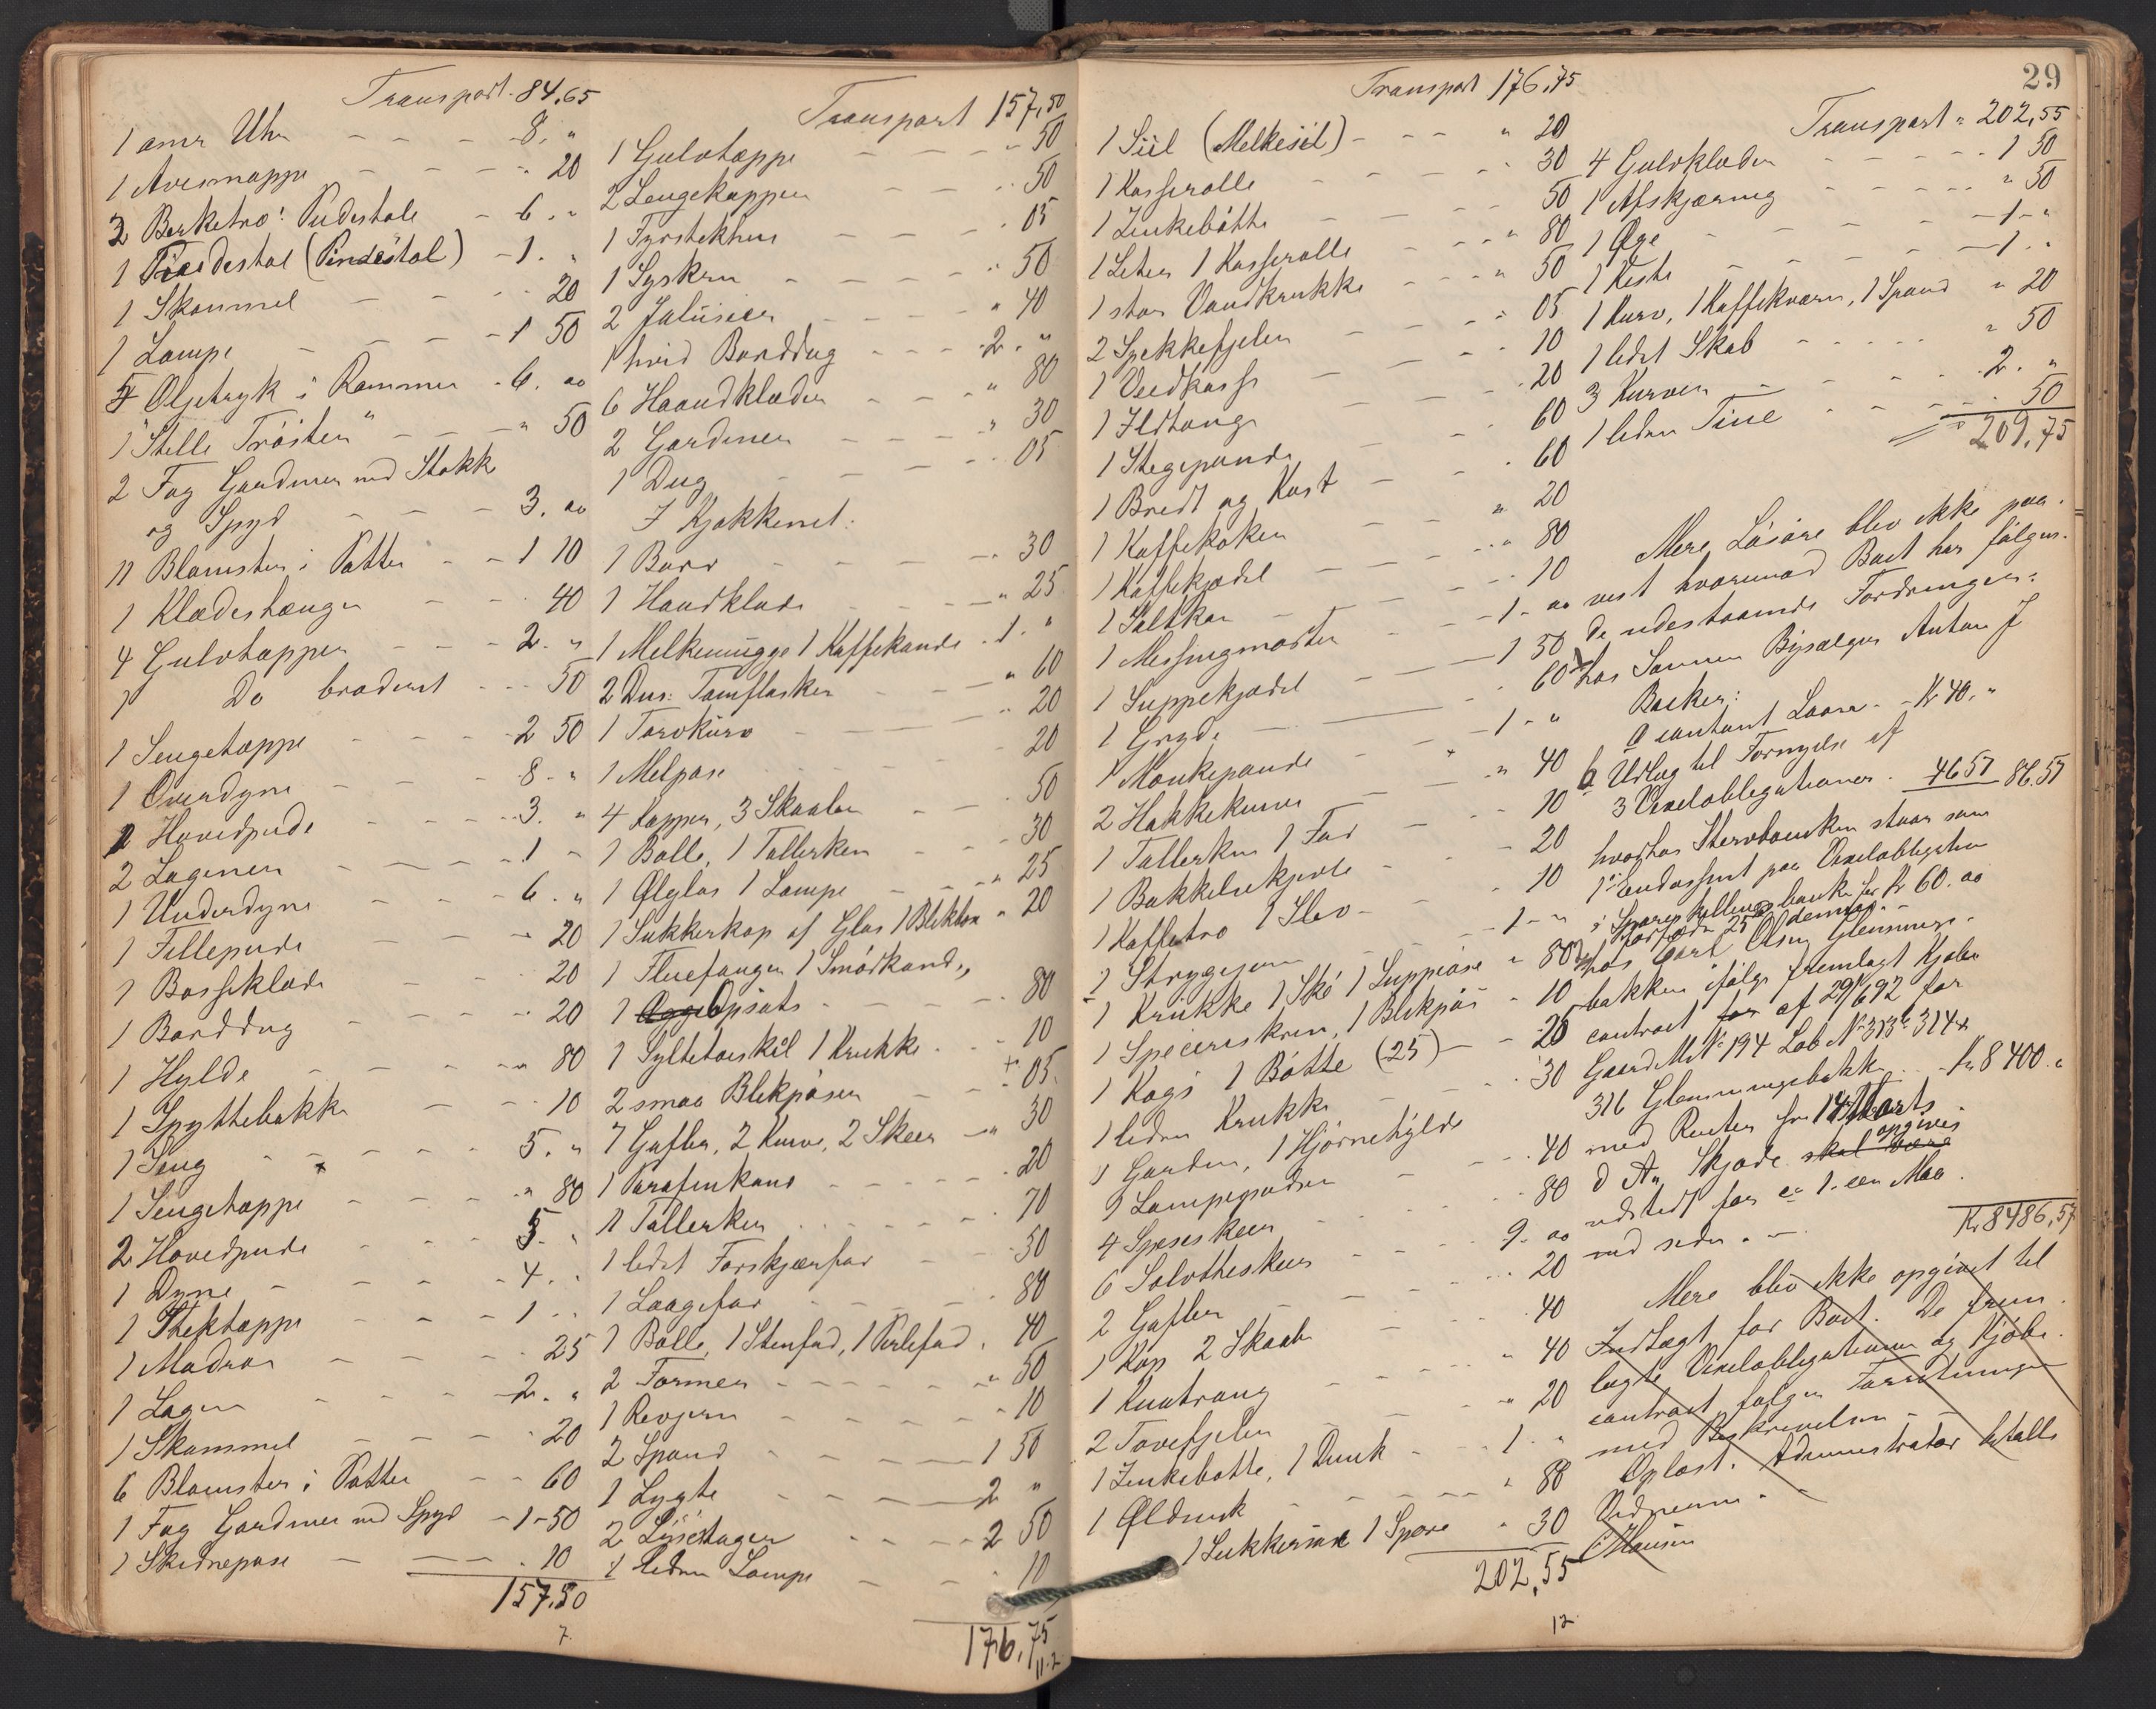 Transport. 84.65
1 amr Uhr - - - 8. "
1 Avismappe - - - " 20
2 Berketræ's Pudestole - 6. "
1 Pindestol (Pindestol) - 1. "
1 Skammel - - - 20
1 Lampe - - - 1 50
5 Oljetryk i Rammer - 6. oo
1 "Stille Trösten" - - - " 50
2 Fag Gardiner med Stokk
og Spyd - - - 3. oo
11 Blomster i Potter - - 1 10
1 Klædeshænger - - - 40
4 Gulvtæpper - - - 2. "
1 Do broderet - - - 50
1 Sengetæppe - - - 2 50
1 Overdyne - - - 8. "
1 Hovedpude - - - 3. "
2 Lagener - - - 1 -
1 Underdyne - - - 6. "
1 Fillepude - - - 20
1 Bosseklæde - - - 20
1 Borddug - - - 20
1 Hylde - - - " 80
1 Spyttebakke - - - 10
1 Seng - - - 5. "
1 Sengetæppe - - - " 80
2 Hovedpude - - - 5. "
1 Dyne - - - 4. "
1 Stektæppe - - - 1 "
1 Madras - - - 25
1 Lagen - - - 2. "
1 Skammel - - - 20
6 Blomster i Potter - - 60
1 Fag Gardiner med Spyd - 1 - 50
1 Skidnepose - - - 10
157.50
7.
Transport 157,50
1 Gulvtæppe - - - " 50
2 Sengekapper - - - 50
1 Fyrstekhus - - - 05
1 Syskrin - - - " 50
2 Jalusier - - - " 40
1 hvid Borddug - - - 2. "
6 Haandklæder - - - " 80
2 Gardiner - - - " 30
1 Dug - - - 05
I Kjøkkenet:
1 Bord - - - 30
1 Haandklæde - - - " 25
1 Melkemugge 1 Kaffekande - 1. "
2 Dus. Tomflasker - - - " 60
1 Torvkurv - - - " 20
1 Melpose - - - 20
4 Kopper, 3 Skaaler - - - 50
1 Bolle, 1 Tallerken - - - 30
1 Ølglas 1 Lampe - - - " 25
1 Sukkerkop af Glas 1 Blikboks " 20
1 Fluefanger 1 Smörkande,,
1 Opsats - - - 80
1 Syltetøiskål 1 Krukke - - 10
2 smaa Blikpåser - - - 05
7 Gafler, 2 Knive, 2 Skeer - " 30
1 Parafinkane - - - 20
11 Tallerken - - - 70
1 ledet Forskjærfad - - 50
1 Laagefad - - - 80
1 Bolle, 1 Stenfad, 1 Perlefad. 40
2 Former - - - " 50
1 Revjern - - - " 10
2 Spand - - - 1 50
1 Lygte - - - 2 "
2 Lysestager - - - 2 50
1 leden Lampe - - - " 10
176,75
11.2
Transport 176,75
1 Siil (Melkesiil) - - - " 20
1 Kasserolle - - - " 30
1 Zinkebötte - - - 50
1 Liter 1 Kasserolle - - - " 80
1 stor Vandkrukke - - - " 50
2 Spekkefjeler - - - " 05
1 Vedkasse - - - 10
1 Ildtang - - - 20
1 Stegepande - - - 60
1 Brett og Kost - - - 60
1 Kaffekoker - - - " 20
1 Kaffekjedel - - - 80
1 Saltkar - - - 10
1 Messingmorter - - - 1 - oo
1 Suppekjedel - - - 1 50
1 Gryde - - - 60
1 Monkepande - - - 1 - "
2 Hakkeknive - - - " 40
1 Tallerken 1 Fad - - - 10
1 Bakkelsekjevle - - - 20
1 Kaffetro 1 Slev - - - 10
1 Strygejern - - - 1 - "
1 Krukke 1 Skö 1 Suppeøse " 80
1 Specericskrin, 1 Blikpås - 10
1 Kagi 1 Bötte (25) - - 20
1 leden Krukke - - - 30
1 Gardin, 1 Hjörnehylde
1 Lampeputer - - - 40
4 Spiseskeer - - - 80
6 Sølvtheskeer - - - 9. oo
2 Gafler - - - 20
1 Kop 2 Skaale - - - 40
1 Knutrang - - - " 40
2 Tovefjeler - - - " 20
1 Zinkebotte, 1 Dunk - - 1. "
1 Øldunk - - - " 80
1 Sukkersax 1 Spore " 30
202,55
12
29
Transport " 202,55
4 Gulvklæder - - - 1 50
1 Afskjæring - - - " 50
1 Øxe - - - 1 - "
1 Kiste - - - 1. "
1 Kurv, 1 Kaffekværn, 1 Spand " 20
1 ledet Skab - - - " 50
3 Kurver - - - 2. "
1 leden Tine - - - 50
209.75
Mere Lösöre blev ikke paa-
vist hvorimod Boet har fölgen-
de udestaaende Fordringer:
1 hos Sönnen Bysælger Anton J
Backer:
a contant Laan - Kr 40. "
b Udlæg til Fornyelse af
3 Vexelobligationer. 46 57 86.57
hvorhos Stervboenken staar som
1ste Endossent paa Vexelobligation
i Spareskillingsbanken for Kr 60. oo
2 hos Carl Olsen Glemminge-
bakken ifölge fremlagt Kjøbe
contract for af 29/6 92 for
Gaard M. No 194 Lab No 313 b 314 &
316 Glemmingebakke - Kr 8 400. "
med Renter fra 14 Marts
d A. Skjøde skal være opgives
udstedt for ca 1. een Maa
ned siden. -
Kr 8486,57
Mere blev ikke opgivet til
Indtægt for Boet. De frem-
lagte Vexelobligationer og Kjøbe-
contract følger Forretningen
med Beskrivelsen -
Oplæst. Administrator betalte
Vidnerne -
C Hansen